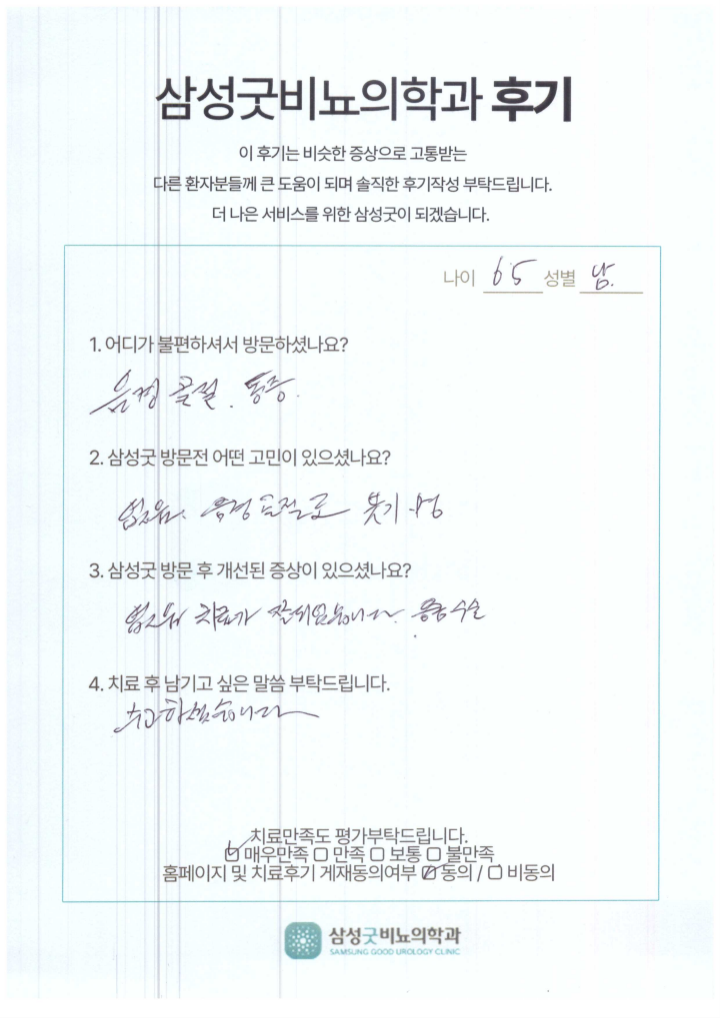 삼성굿비뇨의학과 후기
이 후기는 비슷한 증상으로 고통받는
다른 환자분들께 큰 도움이 되며 솔직한 후기작성 부탁드립니다.
더 나은 서비스를 위한 삼성굿이 되겠습니다.
나이 65 성별 남.
1. 어디가 불편하셔서 방문하셨나요?
음경 골절. 통증.
2. 삼성굿 방문전 어떤 고민이 있으셨나요?
없음. 음경 골절로 붓기 멍
3. 삼성굿 방문 후 개선된 증상이 있으셨나요?
치료가 잘되었습니다. 수술
4. 치료 후 남기고 싶은 말씀 부탁드립니다.
수고하셨습니다
치료만족도 평가부탁드립니다.
매우만족 만족 보통 불만족
홈페이지 및 치료후기 게재동의여부 동의 / 비동의
삼성굿비뇨의학과
SAMSUNG GOOD UROLOGY CLINIC